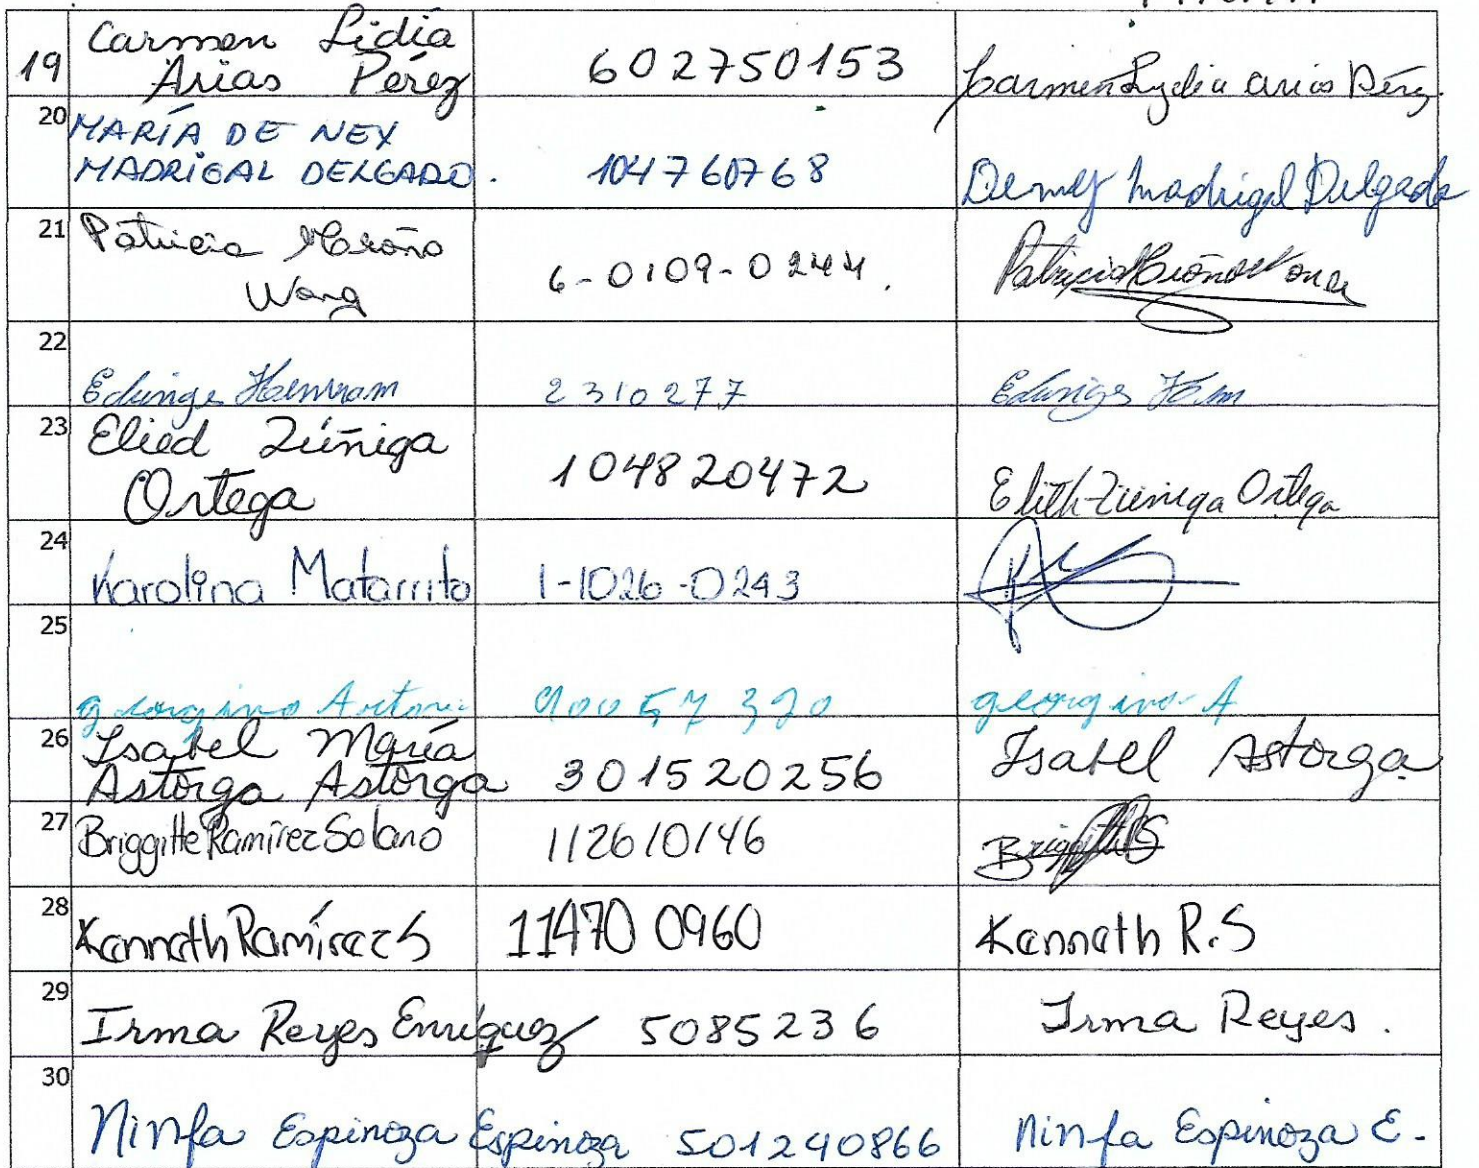 19 Carmen Lidia Arias Pérez 602750153 Carmen Lydia Arias Pérez
20 MARÍA DE NEY MADRIGAL DELGADO. 104760768 Deney Madrigal Delgado
21 Patricia Wong 6-0109-0244. Patricia
22 2310277
23 Elied Zúñiga Ortega 104820472 Elieth Zúniga Ortega
24 Karolina Matarrita 1-1026-0243
25 georgina 90057390 georgina A
26 Isabel María Astorga Astorga 301520256 Isabel Astorga
27 Briggitte Ramírez Solano 112610146
28 Kenneth Ramírez S 11470 0960 Kenneth R.S
29 Irma Reyes Enríquez 5085236 Irma Reyes.
30 Ninfa Espinoza Espinoza 501240866 Ninfa Espinoza E.